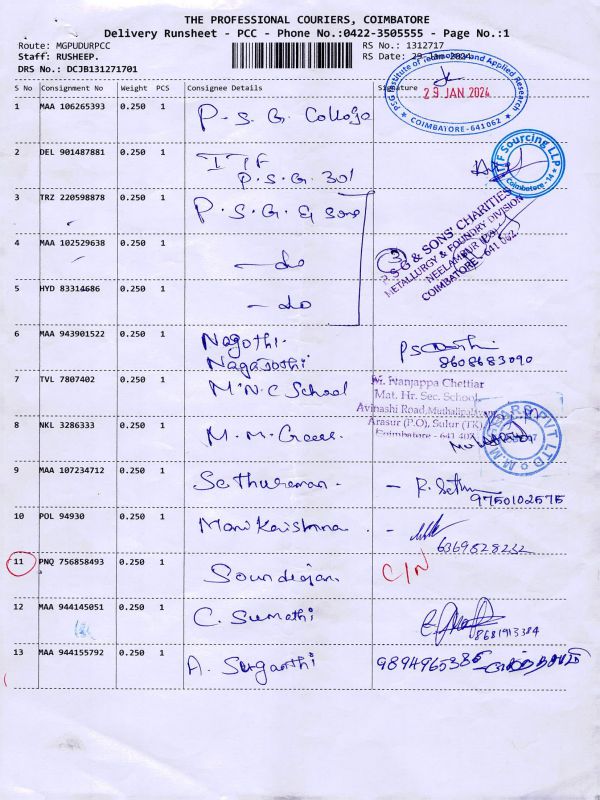 THE PROFESSIONAL COURIERS, COIMBATORE
Delivery Runsheet - PCC - Phone No.:0422-3505555 - Page No.:1
Route: MGPUDURPCC
RS No.: 1312717
Staff: RUSHEEP.
RS Date: 29 Jan 2024
DRS No.: DCJB131271701
S No Consignment No Weight PCS Consignee Details Signature
PSG Institute of Technology and Applied Research
29 JAN 2024
* COIMBATORE-641062 *
1 MAA 106265393 0.250 1 P.S.G. College
2 DEL 901487881 0.250 1 ITF
P.S.G. 301
ITF Sourcing LLP
Coimbatore-14
3 TRZ 220598878 0.250 1 P.S.G. & Sons
P S G & SONS' CHARITIES
METALLURGY & FOUNDRY DIVISION
NEELAMBUR
COIMBATORE-641 062
4 MAA 102529638 0.250 1 - do
5 HYD 83314686 0.250 1 - do
6 MAA 943901522 0.250 1 Nagothi.
Nagajothi
8608683090
7 TVL 7807402 0.250 1 M.N.C School
M. Nanjappa Chettiar
Mat. Hr. Sec. School,
Avinashi Road, Muthalipalayam
Arasur (P.O), Sulur (TK)
Coimbatore - 641 407
8 NKL 3286333 0.250 1 M.M. Gears.
M.M. GEARS PVT LTD
9 MAA 107234712 0.250 1 Sethuraman. - R. Sethu
9750102575
10 POL 94930 0.250 1 Manikrishna. -
6369828232
11 PNQ 756858493 0.250 1 C/N
12 MAA 944145051 0.250 1 C. Sumathi
8681913384
13 MAA 944155792 0.250 1 A.
9894965385